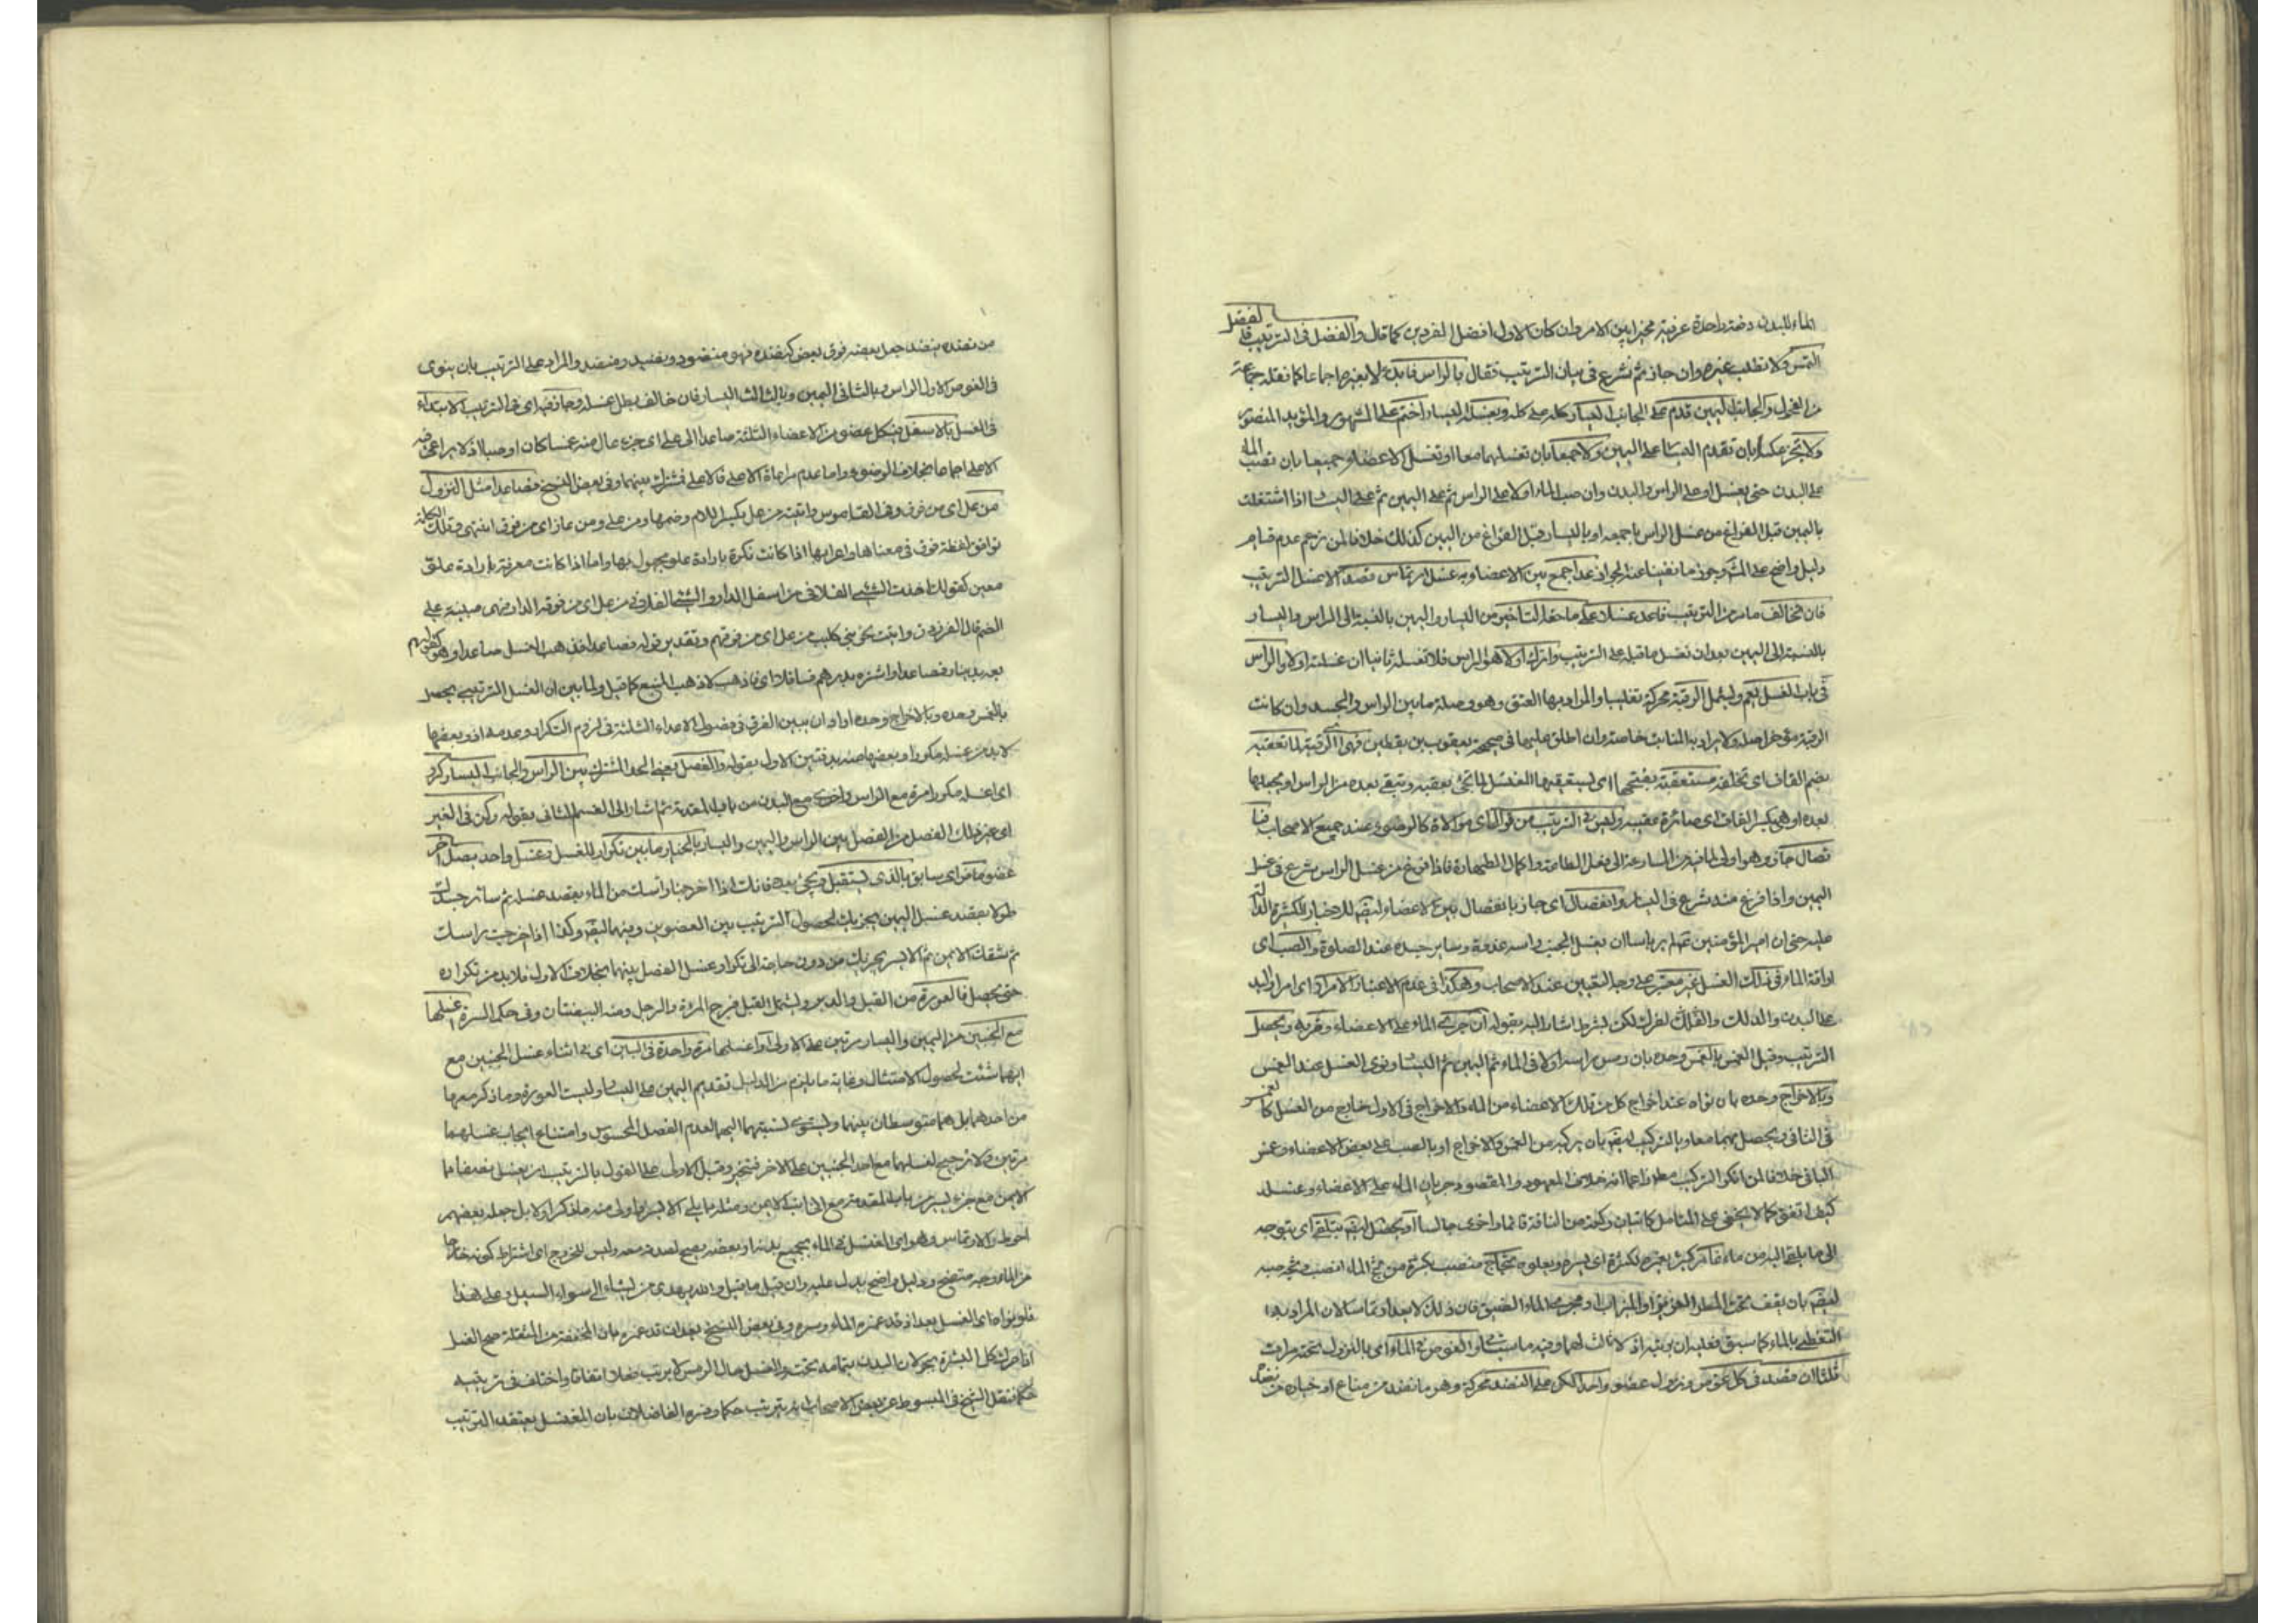 الماء للبدن دفعة واحدة عرفية مخيرا بين الامر وان كان الاول افضل الفردين كما قال والفضل في الترتيب
التمس ولا تطلب غيره وان جاز ثم نشرع في بيان الترتيب فقال بالراس فابدأ لا بغيره اجماعا كما نقله جماعة
من الفحول والجانب اليمين قدم على الجانب اليسار كله على كله وبغسل اليسار اختم على المشهور والمؤيد المنصور
ولا تجز عكسا بان تقدم اليسار على اليمين ولا جمعا بان تغسلهما معا او تغسل الاعضاء جميعا بان تصب الماء
على البدن حتى يغسل او على الراس والبدن وان صب الماء اولا على الراس ثم على اليمين ثم على اليسار اذا اشتغلت
باليمين قبل الفراغ من غسل الراس باجمعه او باليسار قبل الفراغ من اليمين كذلك خلافا لمن زعم عدم قيام
دليل واضح على المنع وجوز ما نفينا عنه الجواز عدا جمع بين الاعضاء وبه غسل ارتماس قصد لا غسل الترتيب
فان تخالف ما مر من الترتيب فاعد غسلا على ما حقه التاخير من اليسار واليمين بالنسبة الى الراس واليسار
بالنسبة الى اليمين بعد ان تغسل ما قبله على الترتيب واترك اولا هو الراس فلا تغسله ثانيا ان غسلته اولا والراس
في باب الغسل يعم ويشمل الرقبة محركة تغليبا والمراد بها العنق وهو وصلة ما بين الراس والجسد وان كانت
الرقبة مؤخر اصله ولا يراد به المنابت خاصة وان اطلق عليهما في صحيحة يعقوب بن يقطين فهي اي الرقبة لما تعقبه
بضم القاف اي تخلفه مستعقبة بفتحها اي يستعقبها الغسل لما تجئ بعقبه وتبقى بعده من الراس او يجعلها
بعده او هي بكسر القاف اي صائرة عقيبه وليس في الترتيب من توال اي موالاة كالوضوء عند جميع الاصحاب
تصال جاز وهو اولى لما فيه من المسارعة الى فعل الطاعة واكمال الطهارة فاذا فرغ من غسل الراس شرع في غسل
اليمين واذا فرغ منه شرع في اليسار وانفصال اي جاز بانفصال بين الاعضاء ايضا للاخبار الكثيرة الدالة
عليه حتى ان امير المؤمنين لم ير باسا ان يغسل الجنب راسه غدوة وساير جسده عند الصلوة والصب اي
اراقة الماء في ذلك الغسل غير معتبر على وجه التعيين عند الاصحاب وهكذا في عدم الاعتبار الامرار اي امرار اليد
على البدن والدلك والفرك لكن بشرط اشار اليه بقوله ان جرى الماء على الاعضاء وقربه ويحصل
الترتيب وقيل الغمس بالغمس وحده بان رمس راسه اولا في الماء ثم اليمين ثم اليسار ونوى الغسل عند الغمس
وبالاخراج وحده بان نواه عند اخراج كل من تلك الاعضاء من الماء والاخراج في الاول خارج من الغسل كالغمس
في الثاني ويحصل بهما معا وبالتركيب ايضا بان يركبه من الغمس والاخراج او بالصب على بعض الاعضاء وغمس
الباقي خلافا لمن انكر التركيب مطلقا زاعما انه خلاف المعهود والمقصود جريان الماء على الاعضاء وغسله
كيف اتفق كما لا يخفى على المتامل كاتيان ركعة من النافلة قائما واخرى جالسا او يحصل ايضا بتلقي اي بتوجه
الى ما يلقي اليه من ماء غامر كثير يغمره لكثرة اي يستره ويعلوه ثجاج منصب بكثرة من ثج الماء انصب وثجه صبه
ايضا بان يقف تحت المطر الغزير او الميزاب او مجرى الماء الضيق فان ذلك لا يعد ارتماسا لان المراد به
التغطي بالماء كما سبق فعليه ان يرتبه اذ لا ثالث لهما وفيه ما سيتلوا الغوص في الماء اي بالنزول تحته مرات
ثلثا ان قصد في كل غوص ونزول عضو واحد الكل على النضد محركة وهو ما نضد من متاع او خياره من نضد
من نضده ينضد جعل بعضه فوق بعض كنضده فهو منضود ونضيد ومنضد والمراد على الترتيب بان ينوى
في الغوص الاول الراس وبالثاني اليمين وبالثالث اليسار فان خالف بطل غسله وجاز فيه اي في الترتيب الابتداء
في الغسل بالاسفل في كل عضو من الاعضاء الثلثة صاعدا الى على اي جزء عال منه غمسا كان او صبا اذ لا يراعى فيه
الاعلى اجماعا بخلاف الوضوء واما عدم مراعاة الاعلى فالاعلى فمشترك بينهما وفي بعض النسخ فصاعدا مثل النزول
من عل اي من فوق وفي القاموس واتيته من عل بكسر اللام وضمها ومن على ومن عال اي من فوق انتهى وتلك الكلمة
توافق لفظة فوق في معناها واعرابها اذا كانت نكرة بارادة علو مجهول بها واما اذا كانت معرفة بارادة علو
معين كقولك اخذت الشيء الفلاني من اسفل الدار والشيء الفلاني من عل اي من فوق الدار فهي مبنية على
الضم قال الفرزدق واتيت نحو بني كليب من عل اي من فوقهم وتقدير قوله فصاعدا فذهب الغسل صاعدا وهو كقولهم
بعته بدينار فصاعدا واشتره بدرهم فسافلا اي فاذهب لا ذهب المبيع كما قيل ولما بين ان الغسل الترتيبي يحصل
بالغمس وحده وبالاخراج وحده اراد ان يبين الفرق في فصول الاعضاء الثلثة في لزوم التكرار وعدمه اذ بعضها
لابد من غسله مكررا وبعضها منه بد فبين الاول بقوله والفصل يعني الحد المشترك بين الراس والجانب اليسار كرر
اي اغسله مكررا مرة مع الراس واخرى مع البدن من باب المقدمة ثم اشار الى القسم الثاني بقوله ولكن في الغير
اي غير ذلك الفصل من الفصل بين الراس واليمين واليسار بالخيار ما بين تكرار للغسل وغسل واحد يصل آخر
عضو ما مر اي سابق بالذي يستقبل ويجئ بعده فانك اذا اخرجنا راسك من الماء بقصد غسله ثم سائر جسدك
طولا بقصد غسل اليمين يجزيك لحصول الترتيب بين العضوين وبينهما ايضا وكذا اذا خرجت راسك
ثم شقك الايمن ثم الايسر يجزيك من دون حاجة الى تكرار غسل الفصل بينهما بخلاف الاول فلابد من تكراره
حتى يحصل فالعورة من القبل والدبر ويشمل القبل فرج المرأة والرجل ومنه البيضتان وفي حكمها السرة اغسلها
مع الجنبين من اليمين واليسار مرتين على الاولى او اغسلها مرة واحدة في البين اي في اثناء غسل الجنبين مع
ايهما شئت لحصول الامتثال وغاية ما يلزم من الدليل تقديم اليمين على اليسار وليست العورة وما ذكر معها
من احدهما بل هما متوسطان بينهما ويستوى نسبتهما اليهما لعدم الفصل المحسوس وامتناع ايجاب غسلهما
مرتين ولا ترجيح لغسلهما مع احد الجنبين على الاخر فتخير وقيل الاولى على القول بالترتيب ان يغسل نصفها
الايمن مع جزء ايسر من باب المقدمة مع الجانب الايمن ومثله ما يلي الايسر والاولى منه ما ذكر اولا بل جعله بعضهم
احوط والارتماس وهو اي الغسل في الماء بجميع بدنه او بعضه يصح لصدقه معه وليس الخروج اي اشتراط كونه خارجا
من الماء وجه متضح ودليل واضح يدل عليه وان قيل ما قيل والله يهدي من يشاء الى سواء السبيل وعلى هذا
فلو نواه اي الغسل بعد اذ قد غمره الماء وستره وفي بعض النسخ بعد ان قد غمره بان المخففة من المثقلة صح الغسل
اذا حرك كل البشرة بحولان البدن بتمامه تحت والغسل حال الرمس لا يرتب فعلا اتفاقا واختلف في ترتيبه
حكما فنقل الشيخ في المبسوط عن بعض الاصحاب انه يترتب حكما وفسره الفاضلان بان المغتسل يعتقد الترتيب